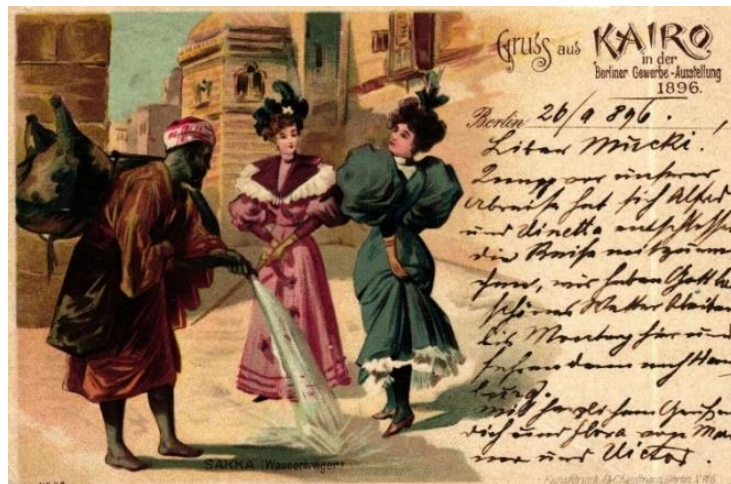 Gruss aus KAIRO
in der
Berliner Gewerbe-Ausstellung
1896.
Berlin 26/9 896.
Lieber Mucki!
vor unserer
Abreise hat sich Alfred
und entschlossen
die Reise mitzuma
chen, wir haben Gottlob
schönes Wetter bleiben
bis Montag hier und
fahren dann nach Ham
burg.
Mit herzlichen Grüßen
dich und Flora von
und Victor.
SAKKA (Wasserträger)